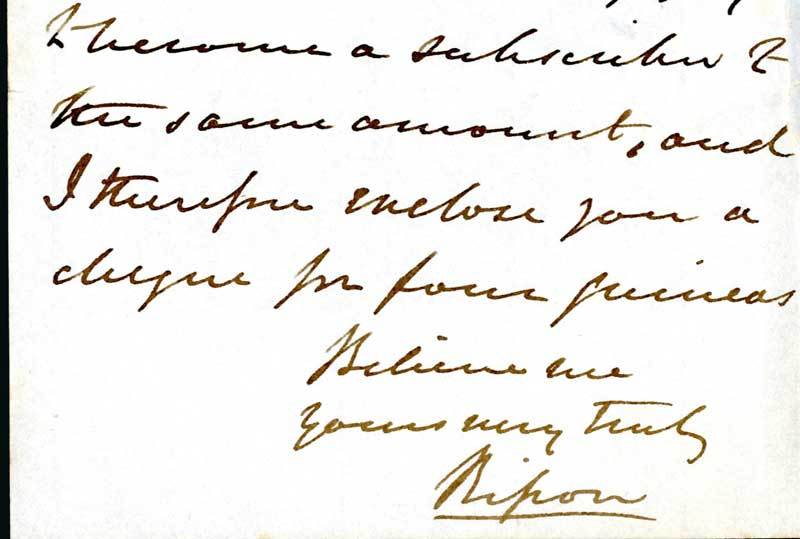 to become a subscriber to
the same amount, and
I therefore enclose you a
cheque for four guineas
Believe me
yours very truly
Ripon